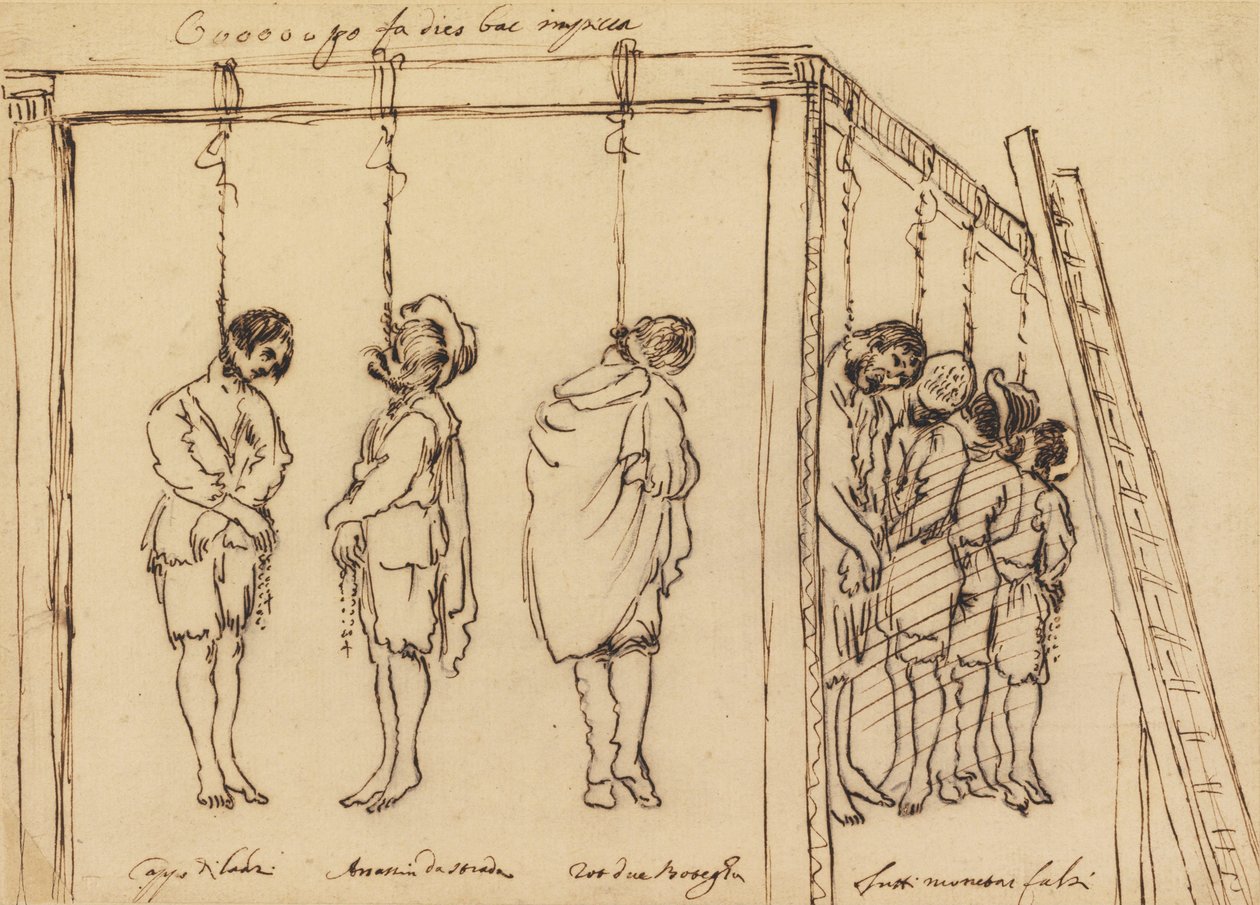 Oooooo po fa dies bae impicca
Cappo di ladri
Assassin da strada
Rob due Bottegh
Tutti monetar falsi